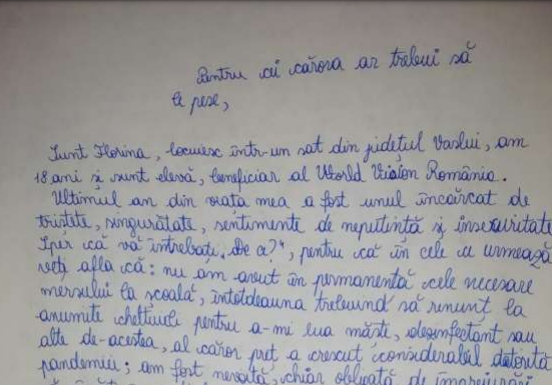 Pentru cei cărora ar trebui să
le pese,
Sunt Florina, locuiesc într-un sat din județul Vaslui, am
18 ani și sunt elevă, beneficiar al World Vision România.
Ultimul an din viața mea a fost unul încărcat de
tristețe, singurătate, sentimente de neputință și insecuritate
Sper că vă întrebați „De ce?", pentru că în cele ce urmează
veți afla că: nu am avut în permanență cele necesare
mersului la școală, întotdeauna trebuind să renunt la
anumite cheltuieli pentru a-mi lua măști, dezinfectant sau
alte de-acestea, al căror preț a crescut considerabil datorită
pandemiei; am fost nevoită, chiar obligată de împrejurări